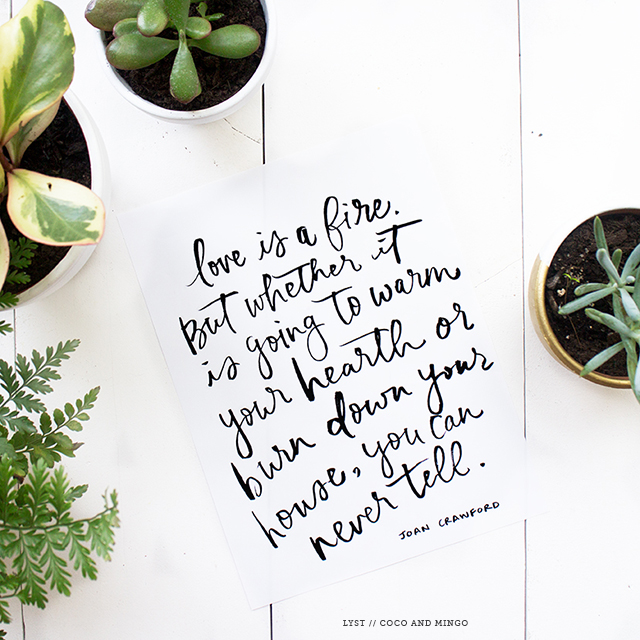 love is a fire.
But whether it
is going to warm
your hearth or
burn down your
house, you can
never tell.
JOAN CRAWFORD
LYST // COCO AND MINGO